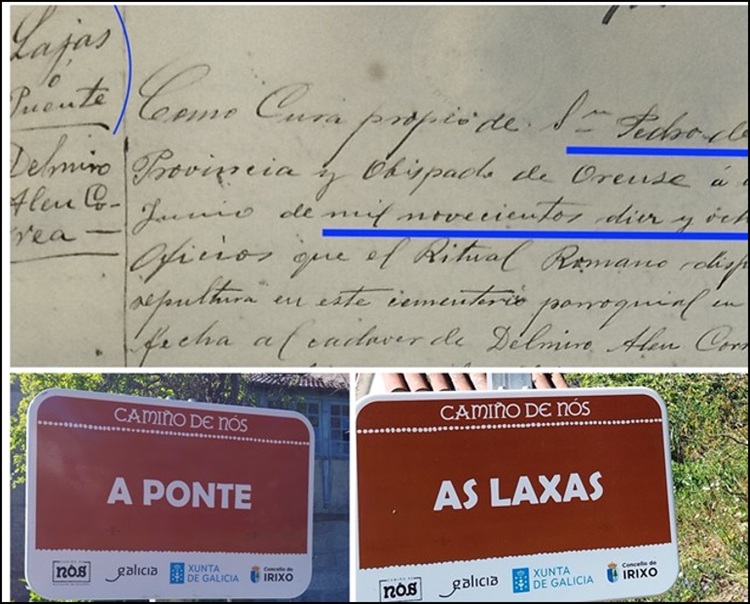 Lajas
ó
Puente
Delmiro
Aleu Co-
rrea
Como Cura propio de Sn Pedro
Provincia y Obispado de Orense á
Junio de mil novecientos diez y och
Oficios que el Ritual Romano disp
sepultura en este cementerio parroquial en
fecha al cadaver de Delmiro Aleu Corr
CAMIÑO DE NÓS
A PONTE
CAMIÑO DE
NÓS
galicia
XUNTA
DE GALICIA
Concello do
IRIXO
CAMIÑO DE NÓS
AS LAXAS
CAMIÑO DE
NÓS
galicia
XUNTA
DE GALICIA
Concello do
IRIXO